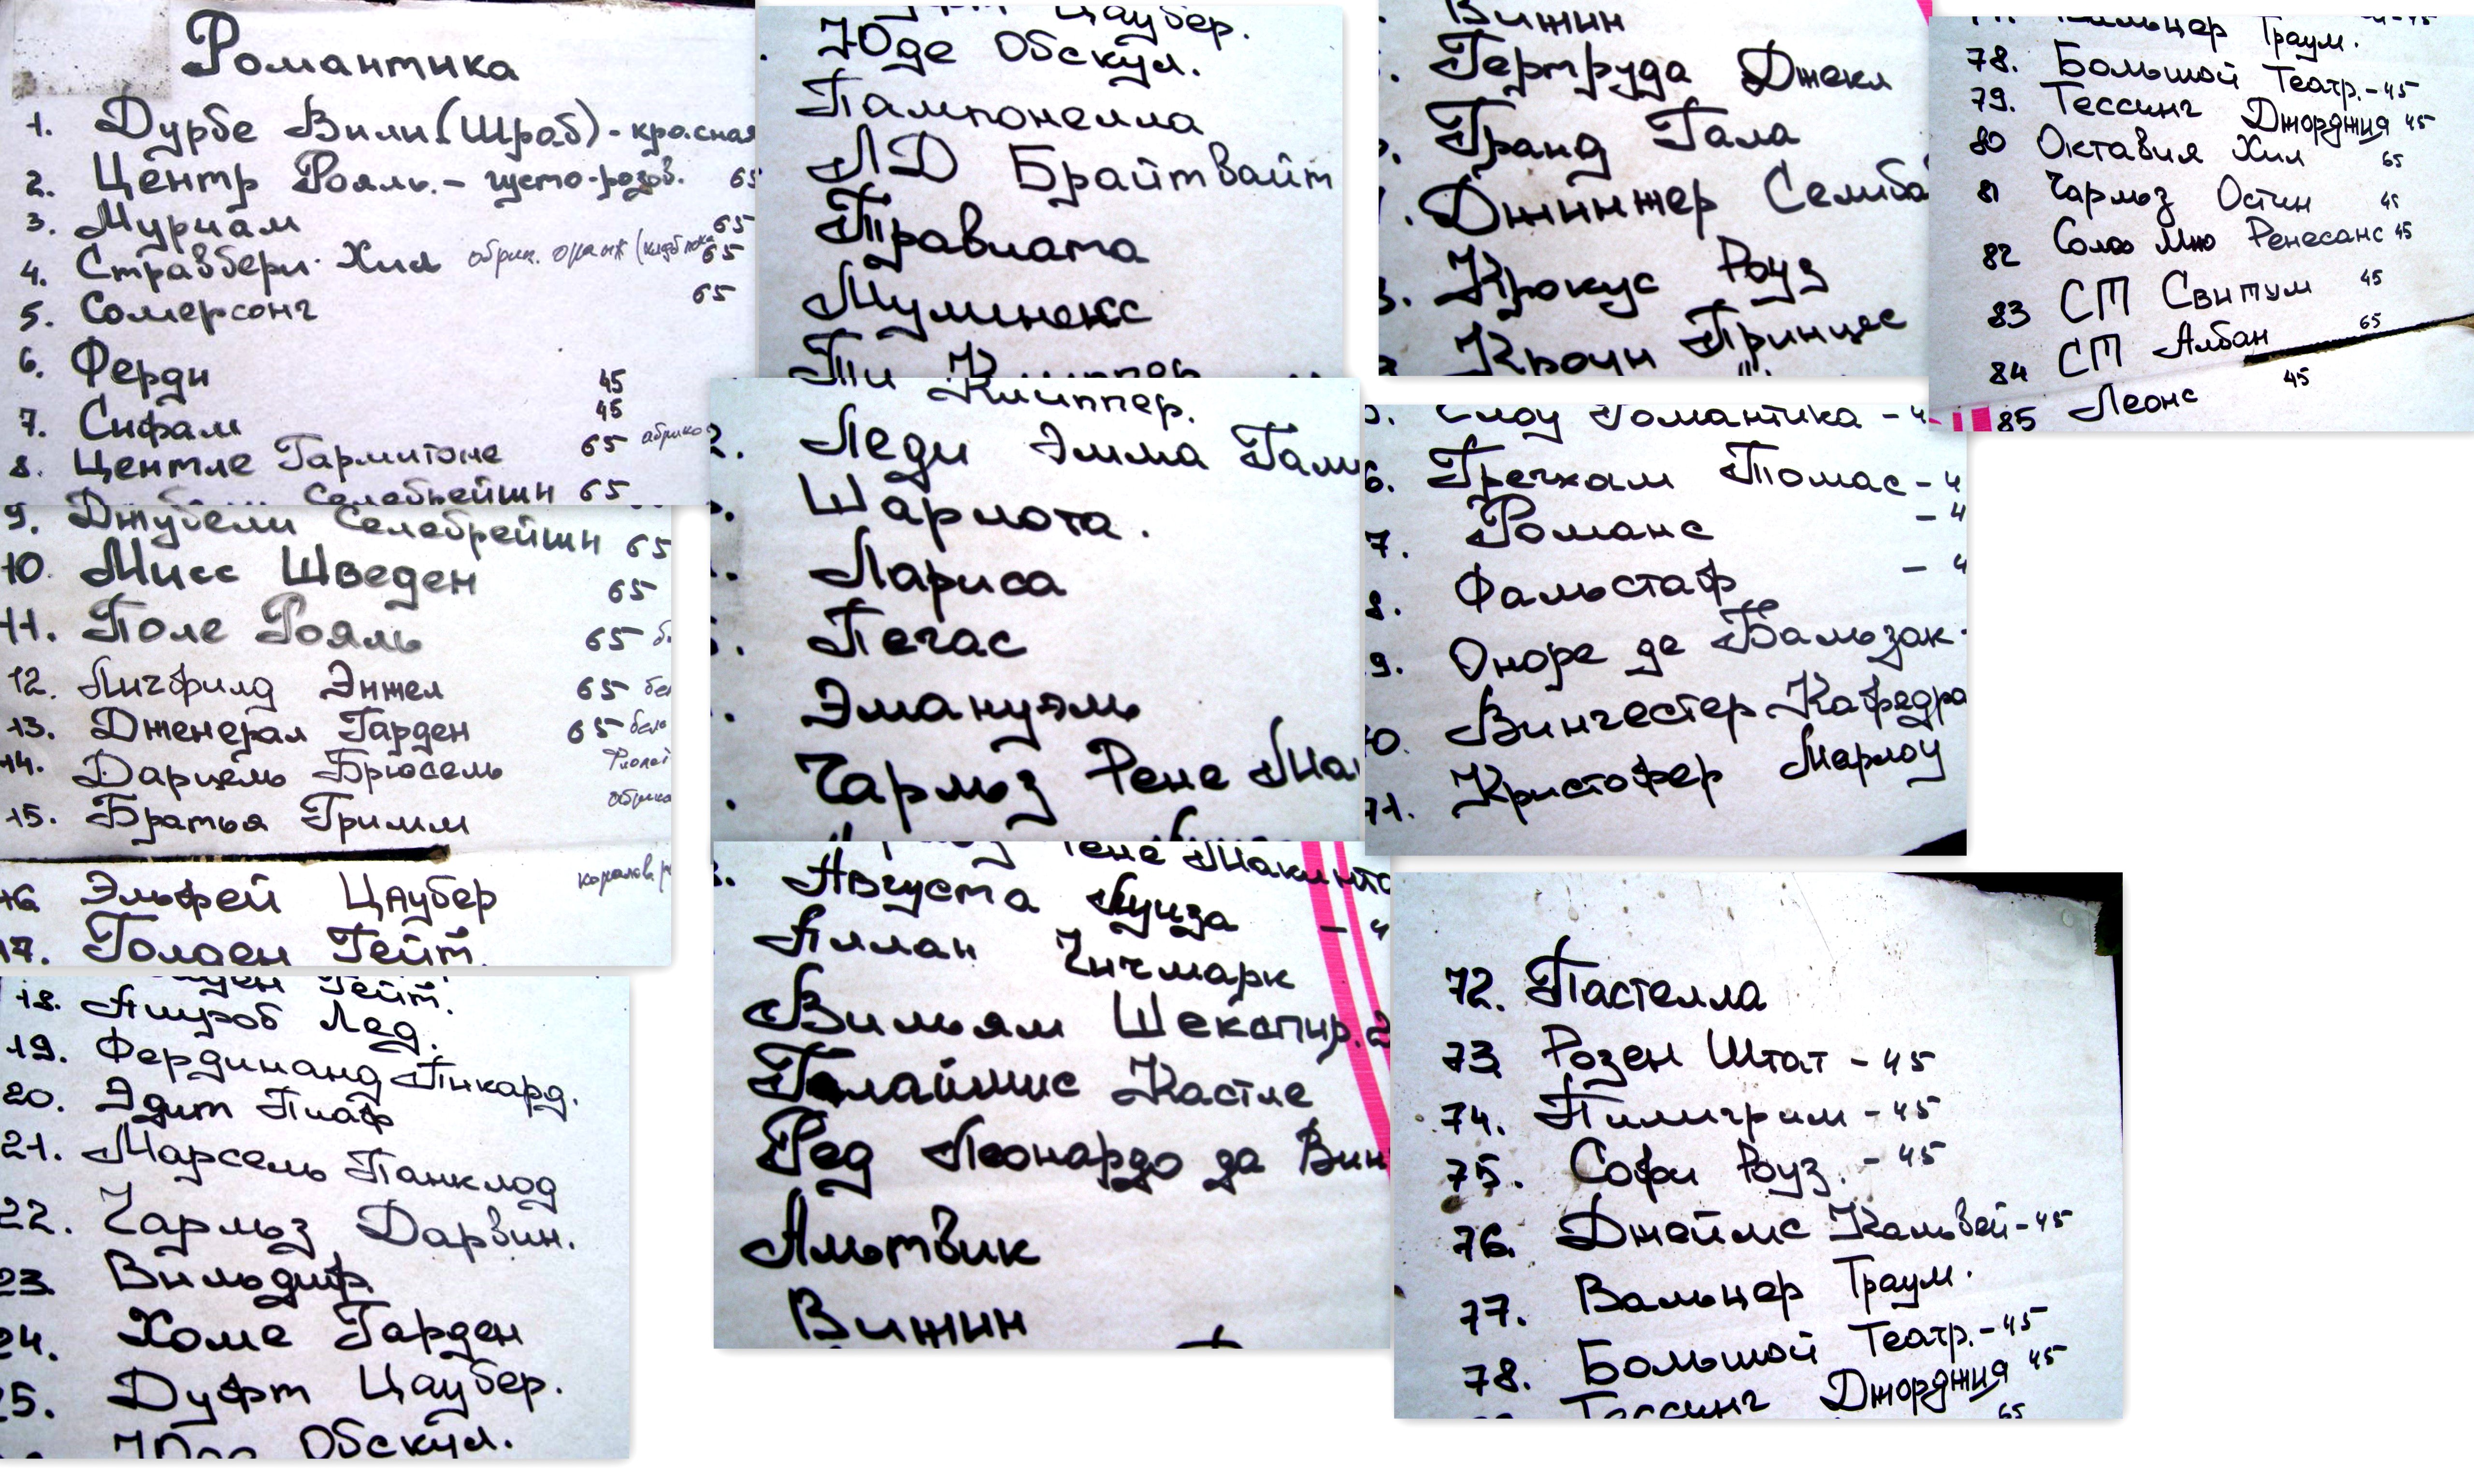 Романтика
1. Дурбе Вили (Шраб) - красная
2. Центр Рояль. - густо-розов. 65
3. Муриам 65
4. Стравбери Хил 65
5. Сомерсонг 65
6. Ферди 45
7. Сифам 45
8. Центле Гармитоне 65
Селебрейшн 65
9. Джубели Селебрейшн 65
10. Мисс Шведен 65
11. Поле Рояль 65
12. Личфилд Энжел 65
13. Дженерал Гарден 65
14. Дарцель Брюсель
15. Братья Гримм
16 Эльфей Цаубер
17. Голден Гейт.
Гейт.
18. Ашроб Лед.
19. Фердинанд Пикард.
20. Эдит Пиаф
21. Марсель Панклод
22. Чарльз Дарвин.
23. Вильдиф
24. Хоме Гарден
25. Дуфт Цаубер.
Обскул.
Цаубер.
Юде Обскул.
Пампонелла
ЛД Брайтвайт
Травиата
Муминекс
Ти Клиппер
Клиппер.
Леди Эмма Гам
Шарлота.
Лариса
Пегас
Эмануэль
Чарльз Рене Ма
Рене Макинто
Августа Луиза
Алан Тичмарк
Вильям Шекспир. 2
Глаймис Кастле
Ред Леонардо да Вин
Альтвик
Вижин
Вижин
Гертруда Джекл
Гранд Гала
Джинжер Семба
Крокус Роуз
Кроун Принцес
Слоу Романтика - 4
6. Гречхам Томас - 4
7. Романс - 4
8. Фальстаф - 4
9. Оноре де Бальзак -
0. Винчестер Кафедра
71. Кристофер Марлоу
72. Пастелла
73 Розен Штат - 45
74. Пилигрим - 45
75. Софи Роуз. - 45
76. Джеймс Кальвей - 45
77. Вальцер Траум.
78. Большой Театр. - 45
Тессинг Джорджия 45
65
Вальцер Траум.
78. Большой Театр. - 45
79. Тессинг Джорджия 45
80 Октавия Хил 65
81 Чарльз Остин 45
82 Соло Мио Ренесанс 45
83 СП Свитум 45
84 СП Албан 65
85 Леонс 45